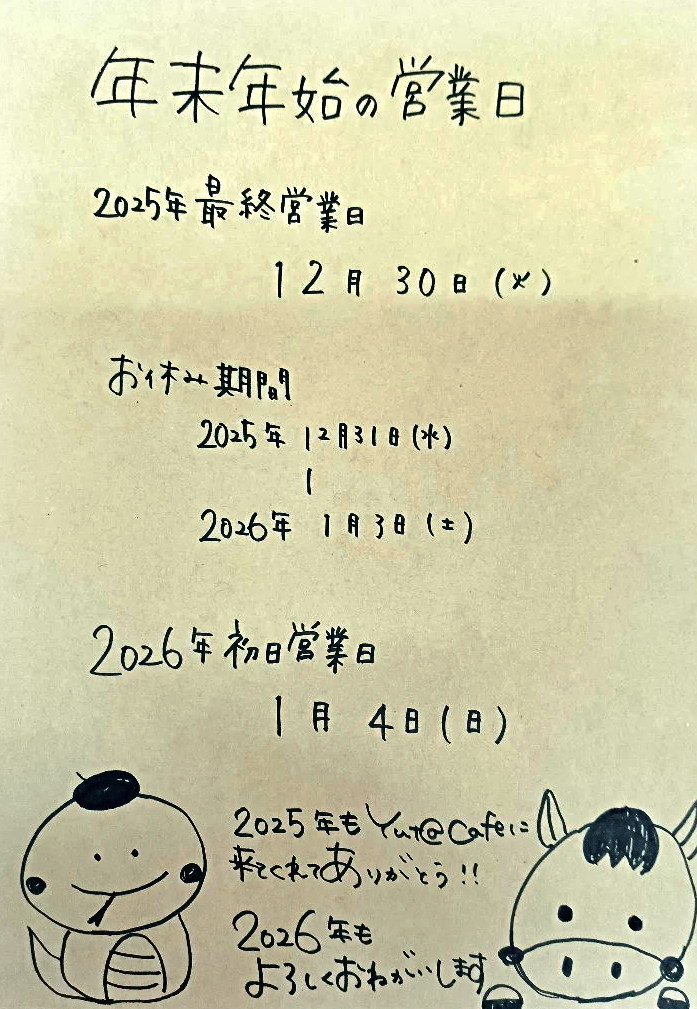 年末年始の営業日
2025年最終営業日
12月30日(火)
お休み期間
2025年12月31日(水)
|
2026年1月3日(土)
2026年初日営業日
1月4日(日)
2025年もYut@Cafeに
来てくれてありがとう!!
2026年も
よろしくおねがいします